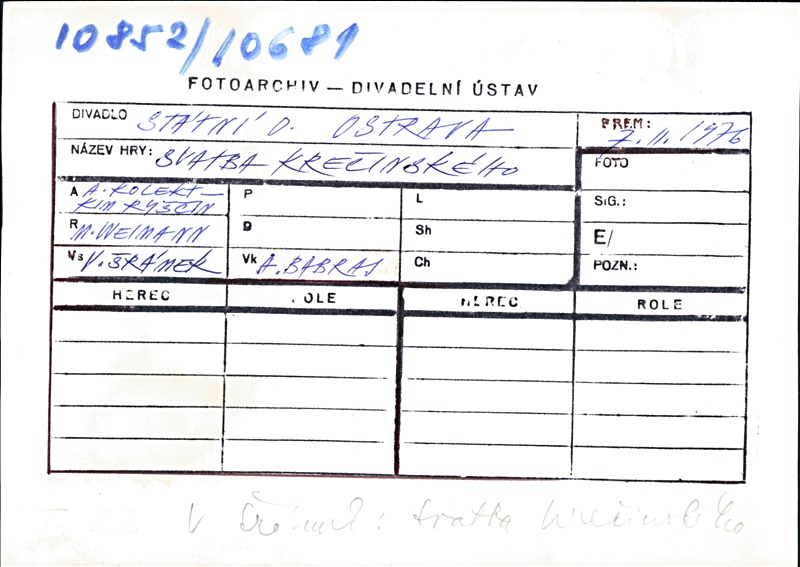 10852/10681
FOTOARCHIV — DIVADELNÍ ÚSTAV
DIVADLO STÁTNÍ D. OSTRAVA
PREM: 7. II. 1976
NÁZEV HRY: SVATBA KREČINSKÉHO
FOTO
A A. KOLEKT—
KIM RYŽČIN
P
L
SIG.:
R M. WEIMANN
D
Sh
E/
Vs V. ŠRÁMEK
Vk A. BABRAJ
Ch
POZN.:
HEREC ROLE HEREC ROLE
V Šrámek: Svatba Krečinského